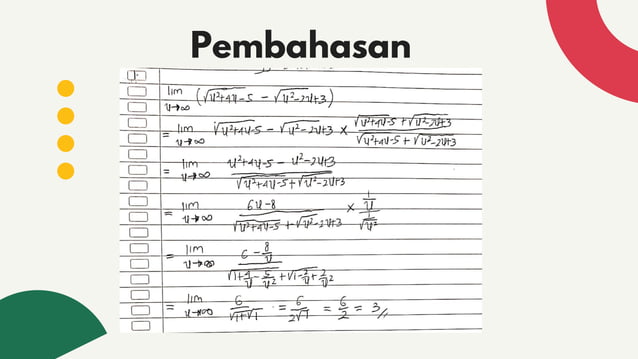 Pembahasan
lim u→∞ (√u²+4u-5 - √u²-2u+3)
= lim u→∞ √u²+4u-5 - √u²-2u+3 × √u²+4u-5 + √u²-2u+3 / √u²+4u-5 + √u²-2u+3
= lim u→∞ u²+4u-5 - u²-2u+3 / √u²+4u-5 + √u²-2u+3
= lim u→∞ 6u-8 / √u²+4u-5 + √u²-2u+3 × 1/u / 1/√u²
= lim u→∞ 6 - 8/u / √1+4/u-5/u² + √1-2/u+3/u²
= lim u→∞ 6 / √1+√1 = 6 / 2√1 = 6/2 = 3//